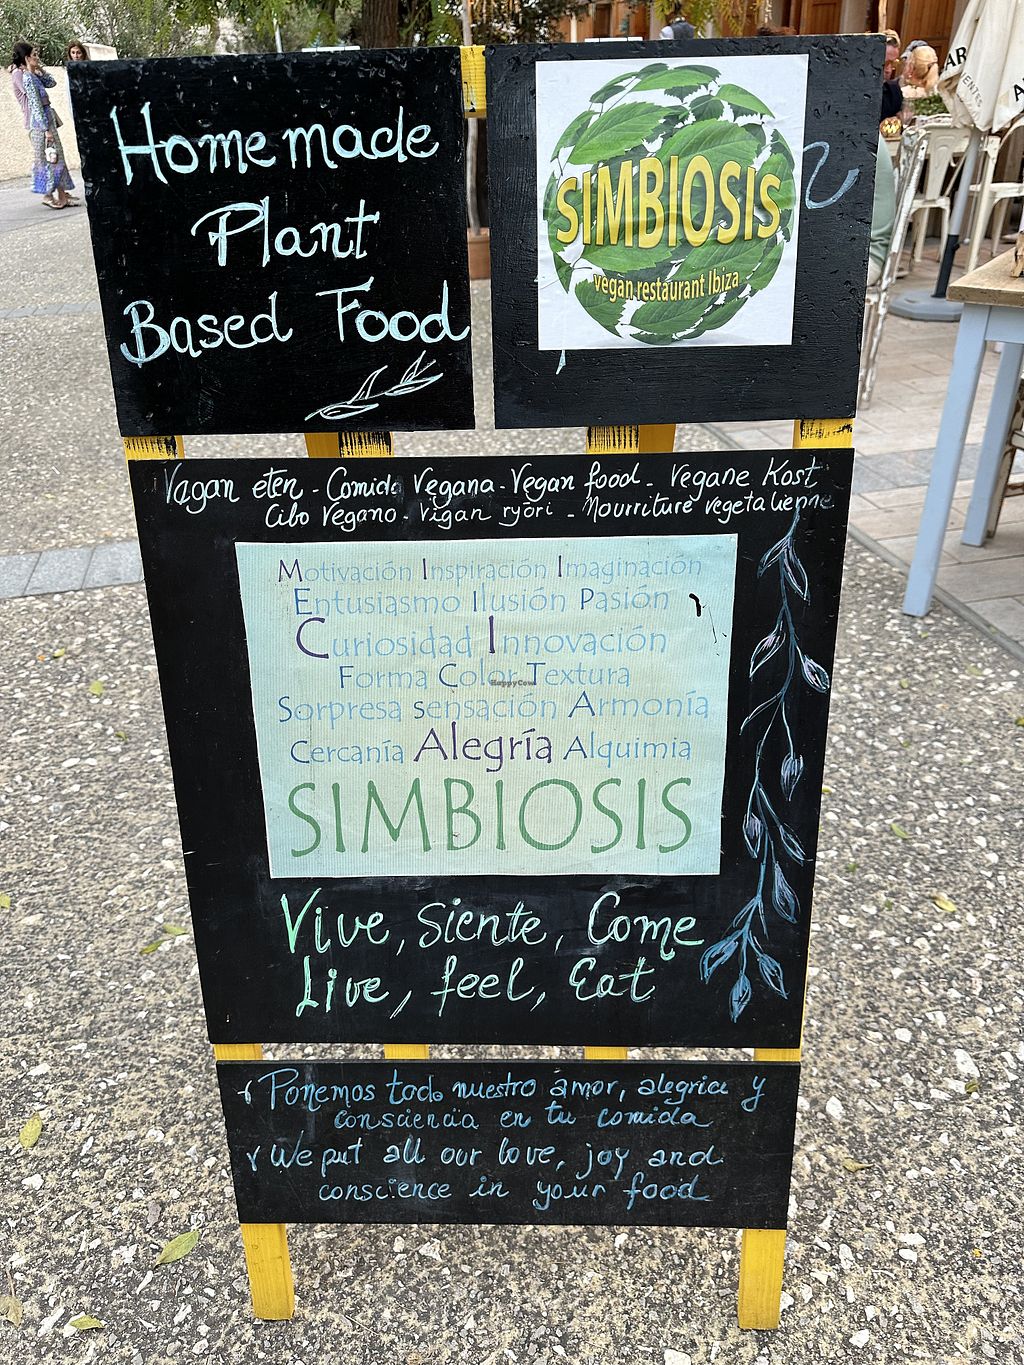 Homemade
Plant
Based Food
SIMBIOSIS
vegan restaurant Ibiza
Vagan eten - Comida Vegana - Vegan food - Vegane Kost
Cibo Vegano - Vigan ryōri - Nourriture vegetalienne
Motivación Inspiración Imaginación
Entusiasmo Ilusión Pasión
Curiosidad Innovación
Forma Color Textura
HappyCow
Sorpresa sensación Armonía
Cercanía Alegría Alquimia
SIMBIOSIS
Vive, Siente, Come
Live, feel, Eat
Ponemos todo nuestro amor, alegria y
consciencia en tu comida
We put all our love, joy and
conscience in your food